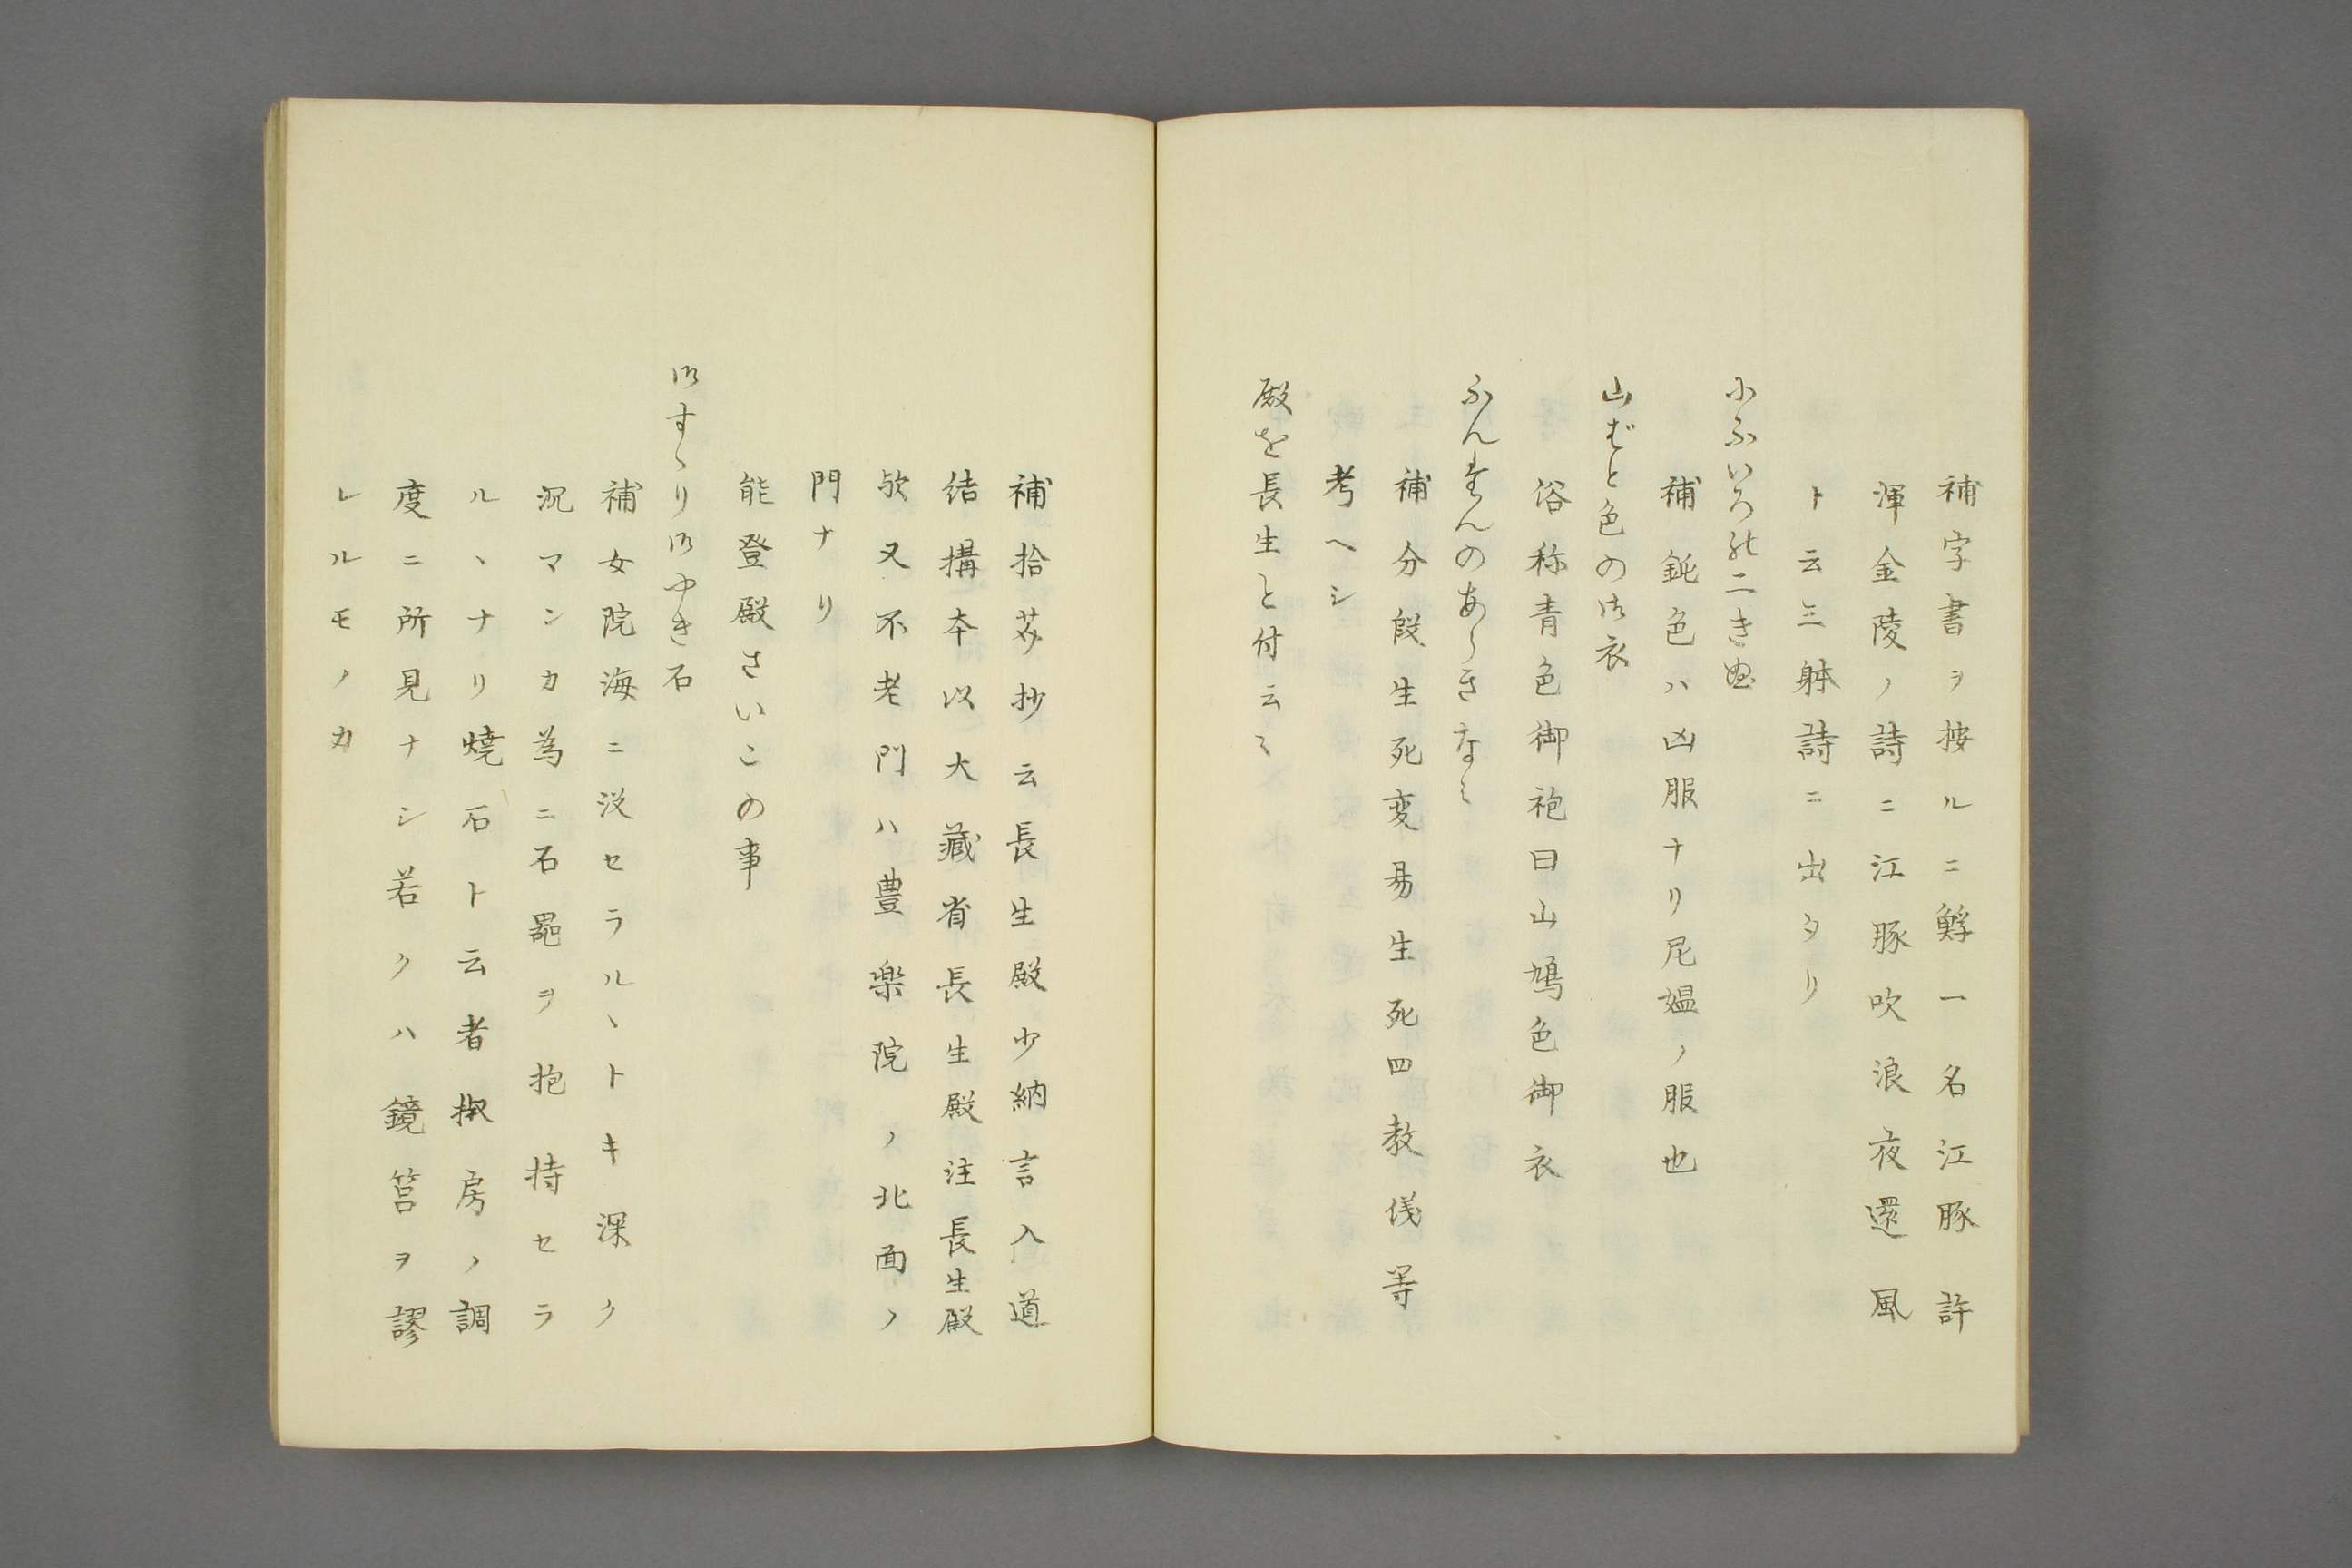 補字書ヲ按ルニ鯙一名江豚許
渾金陵ノ詩ニ江豚吹浪夜還風
ト云三躰詩ニ出タリ
にふいろの二きぬ
補鈍色ハ凶服ナリ尼媼ノ服也
山ばと色の御衣
俗称青色御袍曰山鳩色御衣
ふんだんのあらきなミ
補分段生死変易生死四教儀等
考ヘシ
殿を長生と付云〻
補拾芥抄云長生殿少納言入道
結搆本以大藏省長生殿注長生殿
欤又不老門ハ豊楽院ノ北面ノ
門ナリ
能登殿さいこの事
御すゝり御やき石
補女院海ニ没セラルヽトキ深ク
沉マンカ為ニ石罌ヲ抱持セラ
ルヽナリ焼石ト云者椒房ノ調
度ニ所見ナシ若クハ鏡筥ヲ謬
レルモノカ